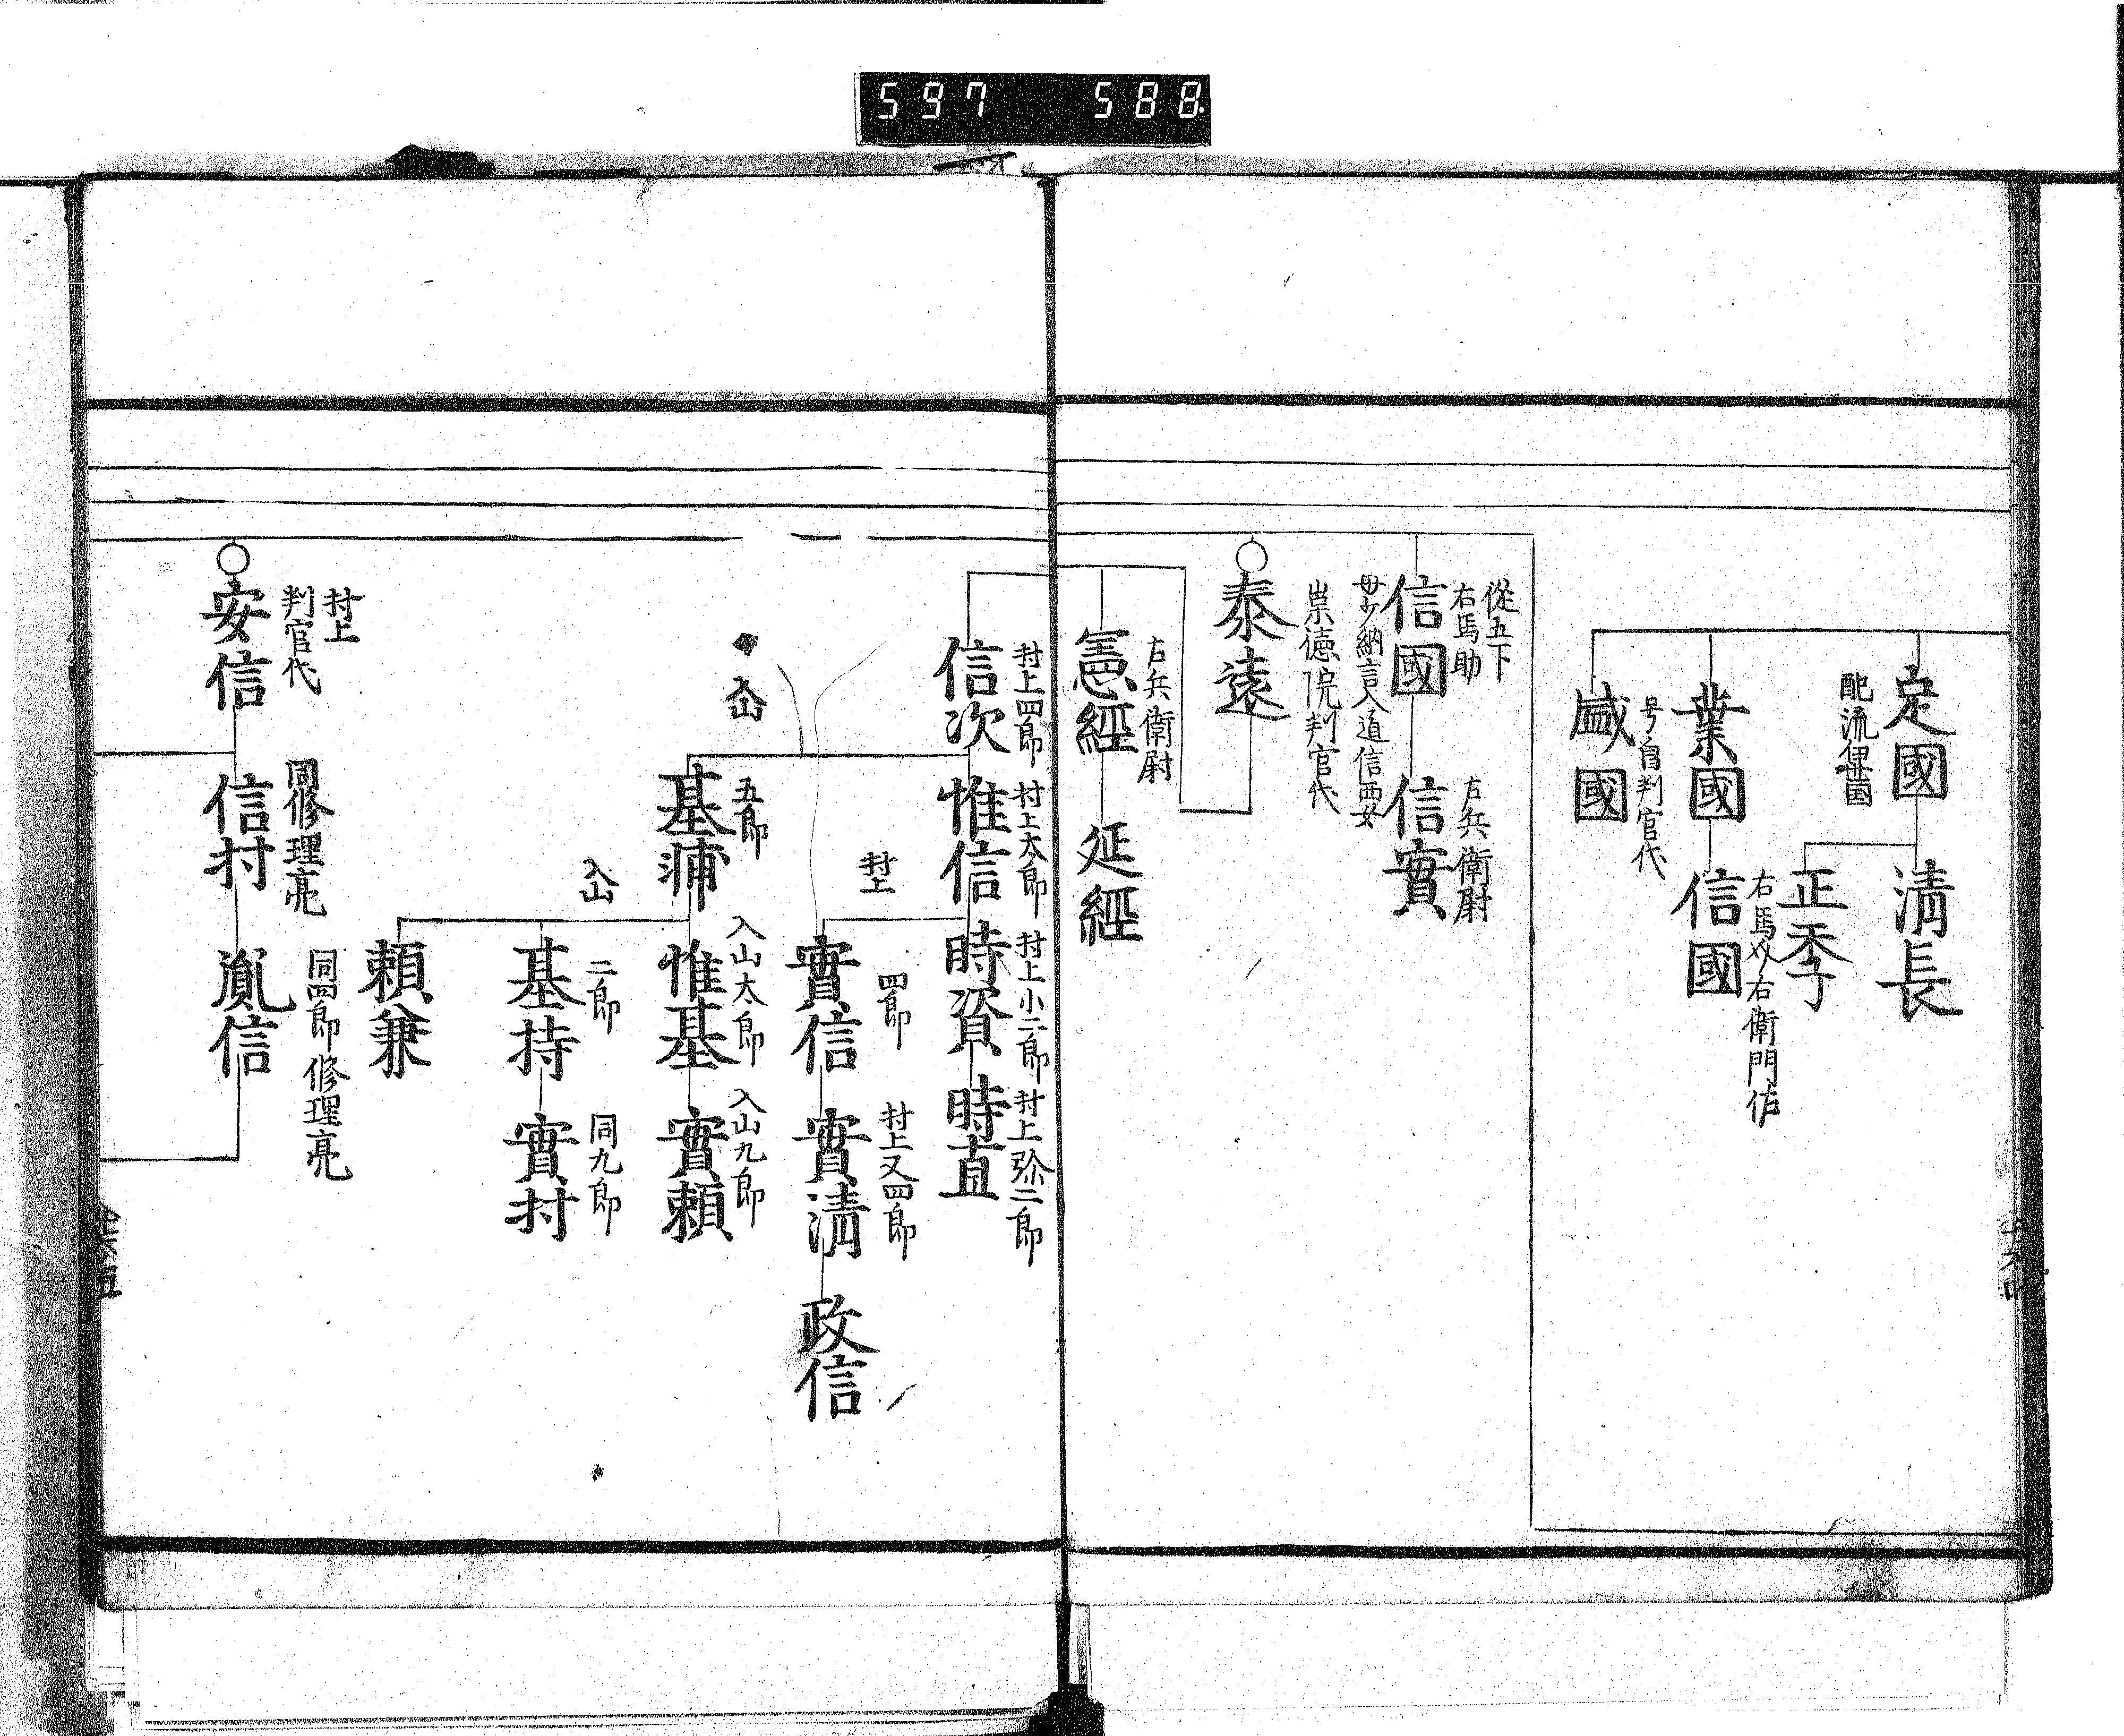 597 588
定國
配流伊豆国
清長
正季
業國
信國
右馬允右衛門佐
盛國
号自判官代
從五下
右馬助
信國
母少納言入道信西女
右兵衛尉
信實
崇徳院判官代
泰遠
右兵衛尉
憲經
延經
村上四郎
信次
村上太郎
惟信
村上小二郎
時資
村上弥二郎
時直
村上
四郎
實信
村上又四郎
實清
政信
入山
五郎
基浦
入山太郎
惟基
入山九郎
實頼
入山
二郎
基持
同九郎
實村
頼兼
村上
判官代
安信
同修理亮
信村
同四郎修理亮
胤信